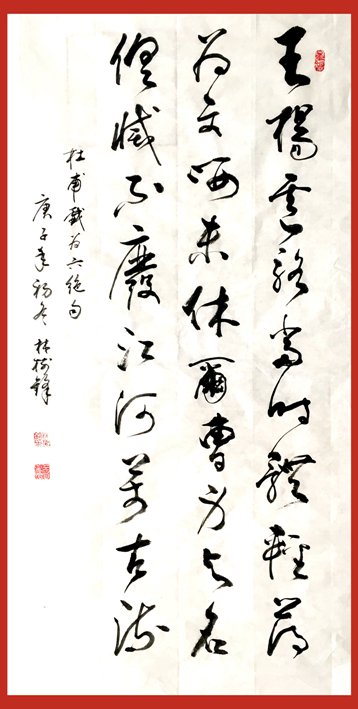 王楊盧駱當時體輕薄
為文哂未休爾曹身与名
俱滅不廢江河萬古流
杜甫戲為六絕句
庚子年初冬林